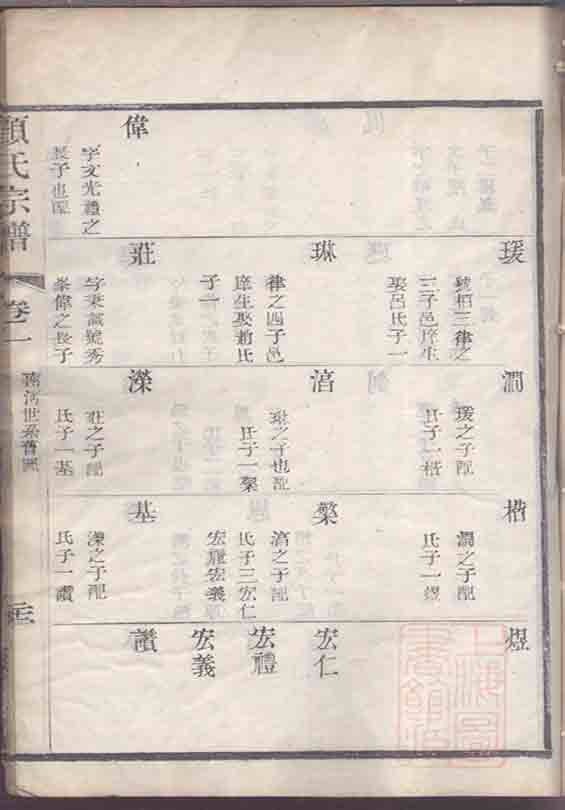 偉
字文光禮之
長子也配
瑗
號栢三律之
三子邑庠生
娶呂氏子一
琳
律之四子邑
庠生娶趙氏
子一
莊
字秉誠號秀
峯偉之長子
澗
瑗之子配
氏子一楷
滈
琳之子也配
氏子一檠
濼
莊之子配
氏子一基
楷
澗之子配
氏子一煜
檠
滈之子配
氏子三宏仁
宏禮宏義
基
濼之子配
氏子一讚
煜
宏仁
宏禮
宏義
讚
顧氏宗譜
卷之一
世系